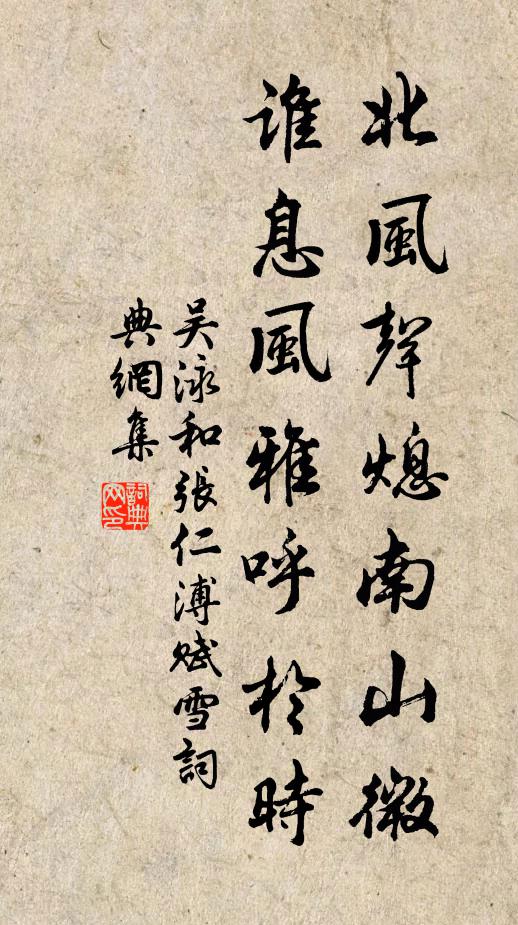 北風聲熄南山微
誰息風雅呼於時
吴泳和張仁溥賦雪詞
典網集
詞典網印